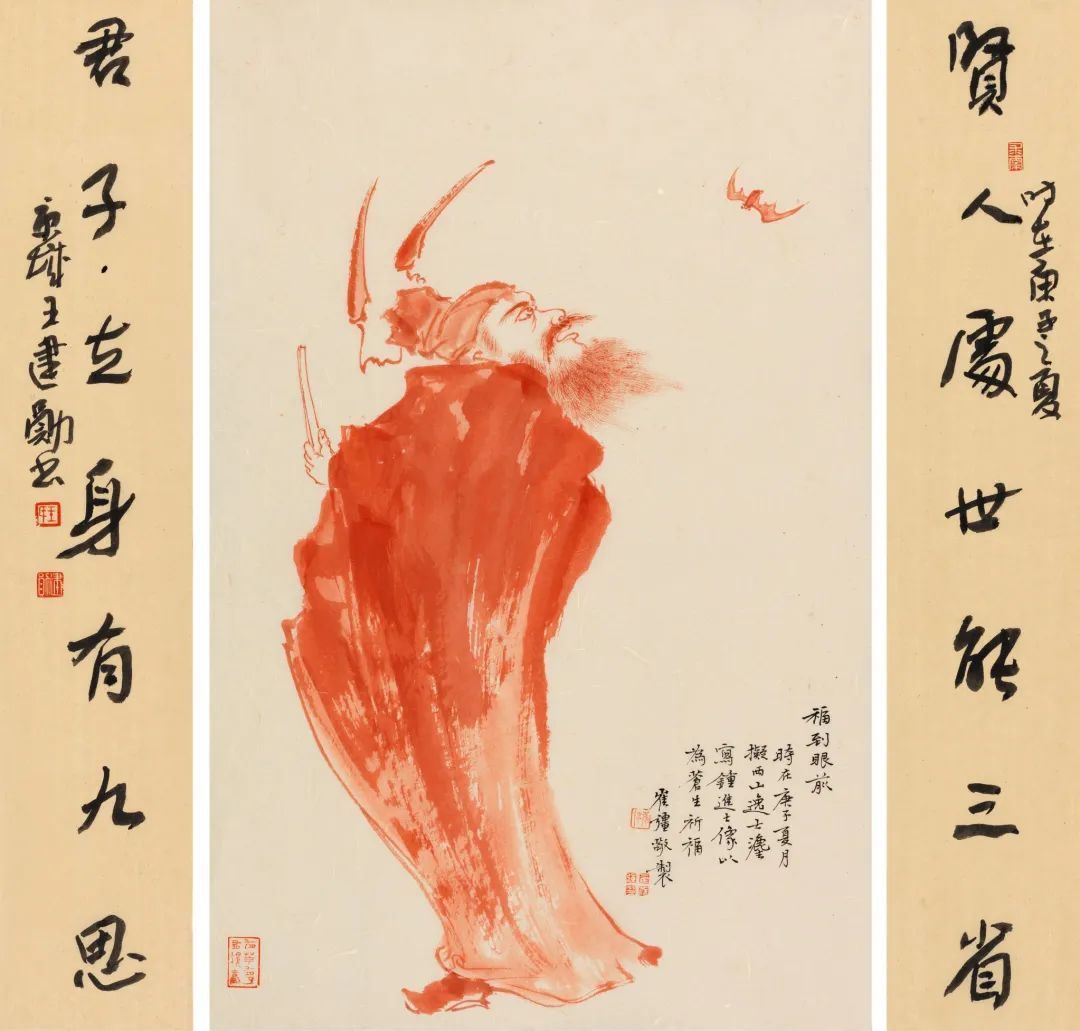 賢人處世能三省
时在庚子之夏
福到眼前
時在庚子夏月
擬西山逸士灋
寫鍾進士像以
為蒼生祈福
崔疆敬製
君子立身有九思
京城王建勛书